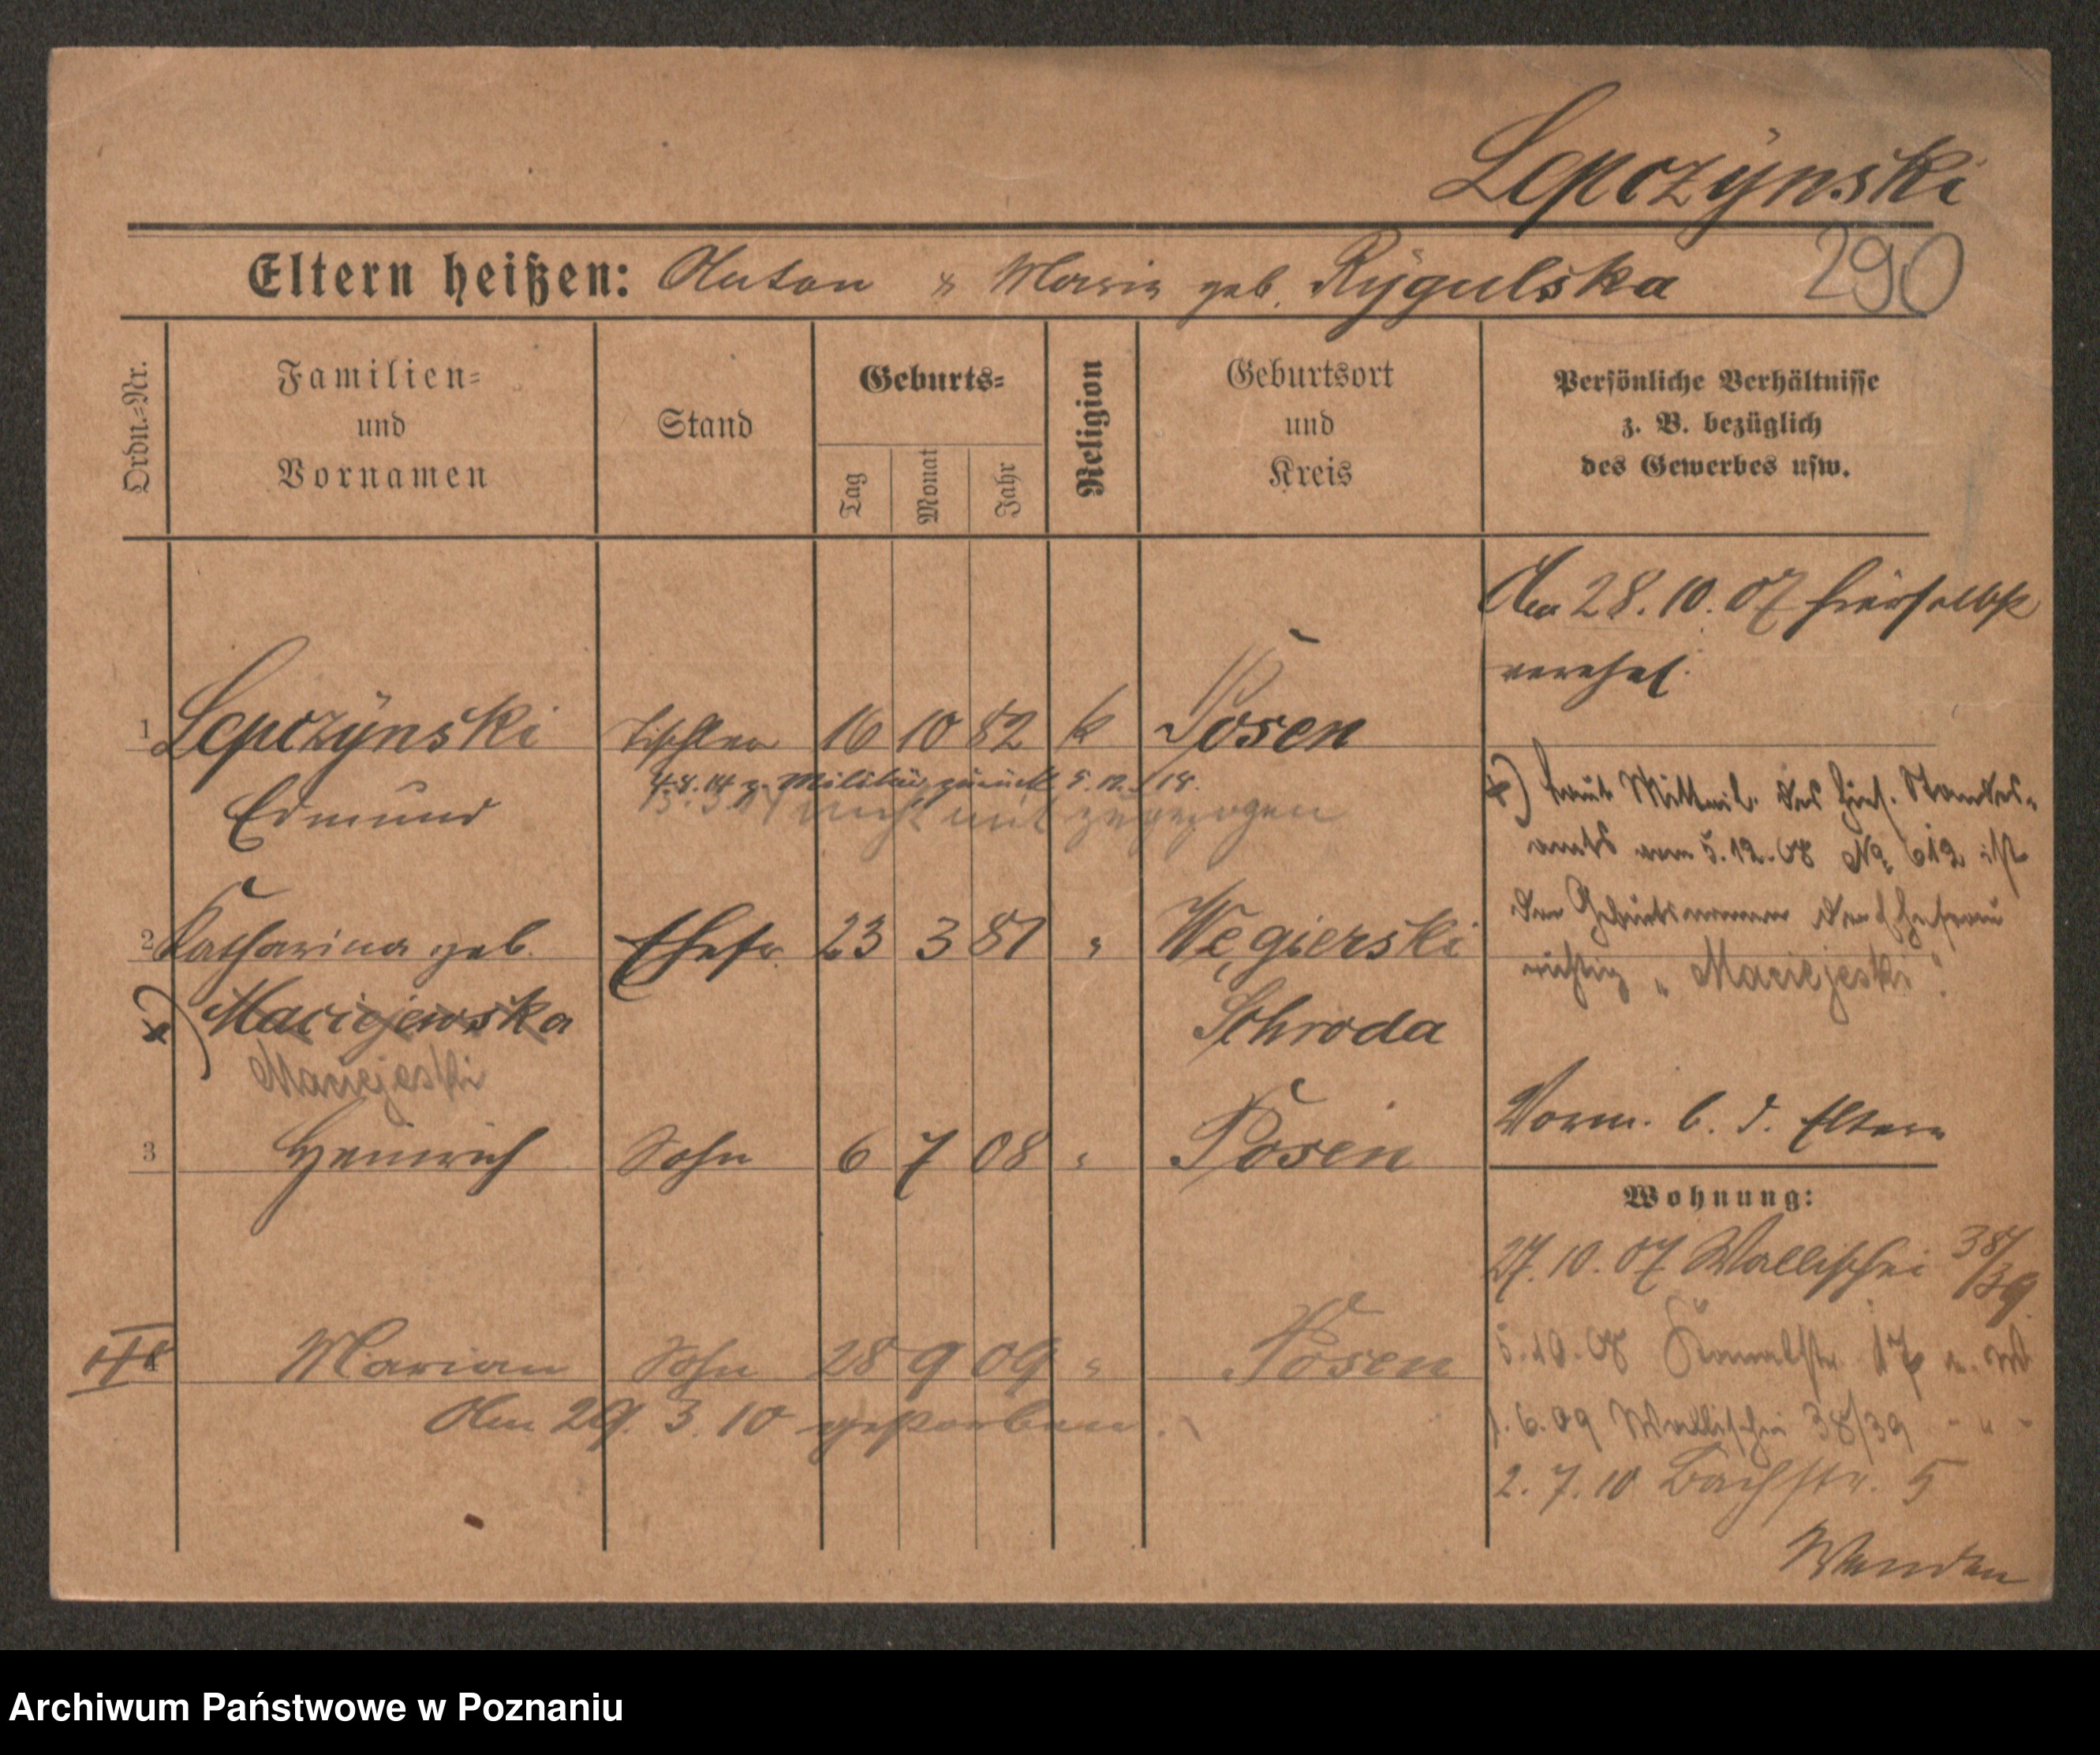 Lepczÿnski
Eltern heißen: Anton & Maria geb. Rÿgulska 290
Ordn.=Nr.
Familien=
und
Vornamen
Stand
Geburts=
Tag
Monat
Jahr
Religion
Geburtsort
und
Kreis
Persönliche Verhältnisse
z. B. bezüglich
des Gewerbes usw.
Am 28.10.07 hierselbst
verehel.
1 Lepczÿnski Tischler 16 10 82 k Posen
4.8.14 z. Militär, zurück 5.12.18.
Edmund
nicht mit zugezogen
x) Laut Mitteil. des hies. Standes=
amts vom 5.12.08 No 612 ist
der Geburtsnamen der Ehefrau
richtig „Maciejeski".
2 Katharina geb. Ehefr. 23 3 81 " Węgierski
x) Maciejewska Schroda
Maciejeski
3 Heinrich Sohn 6 7 08 " Posen
Vorm. b. d. Eltern
Wohnung:
27.10.07 Wallischei 38/39
5.10.08 Kanalstr. 17
1.6.09 Wallischei 38/39 - " -
2.7.10 Bachstr. 5
4 Marian Sohn 28 9 09 " Posen
Am 29.3.10 gestorben.
Wenden
Archiwum Państwowe w Poznaniu